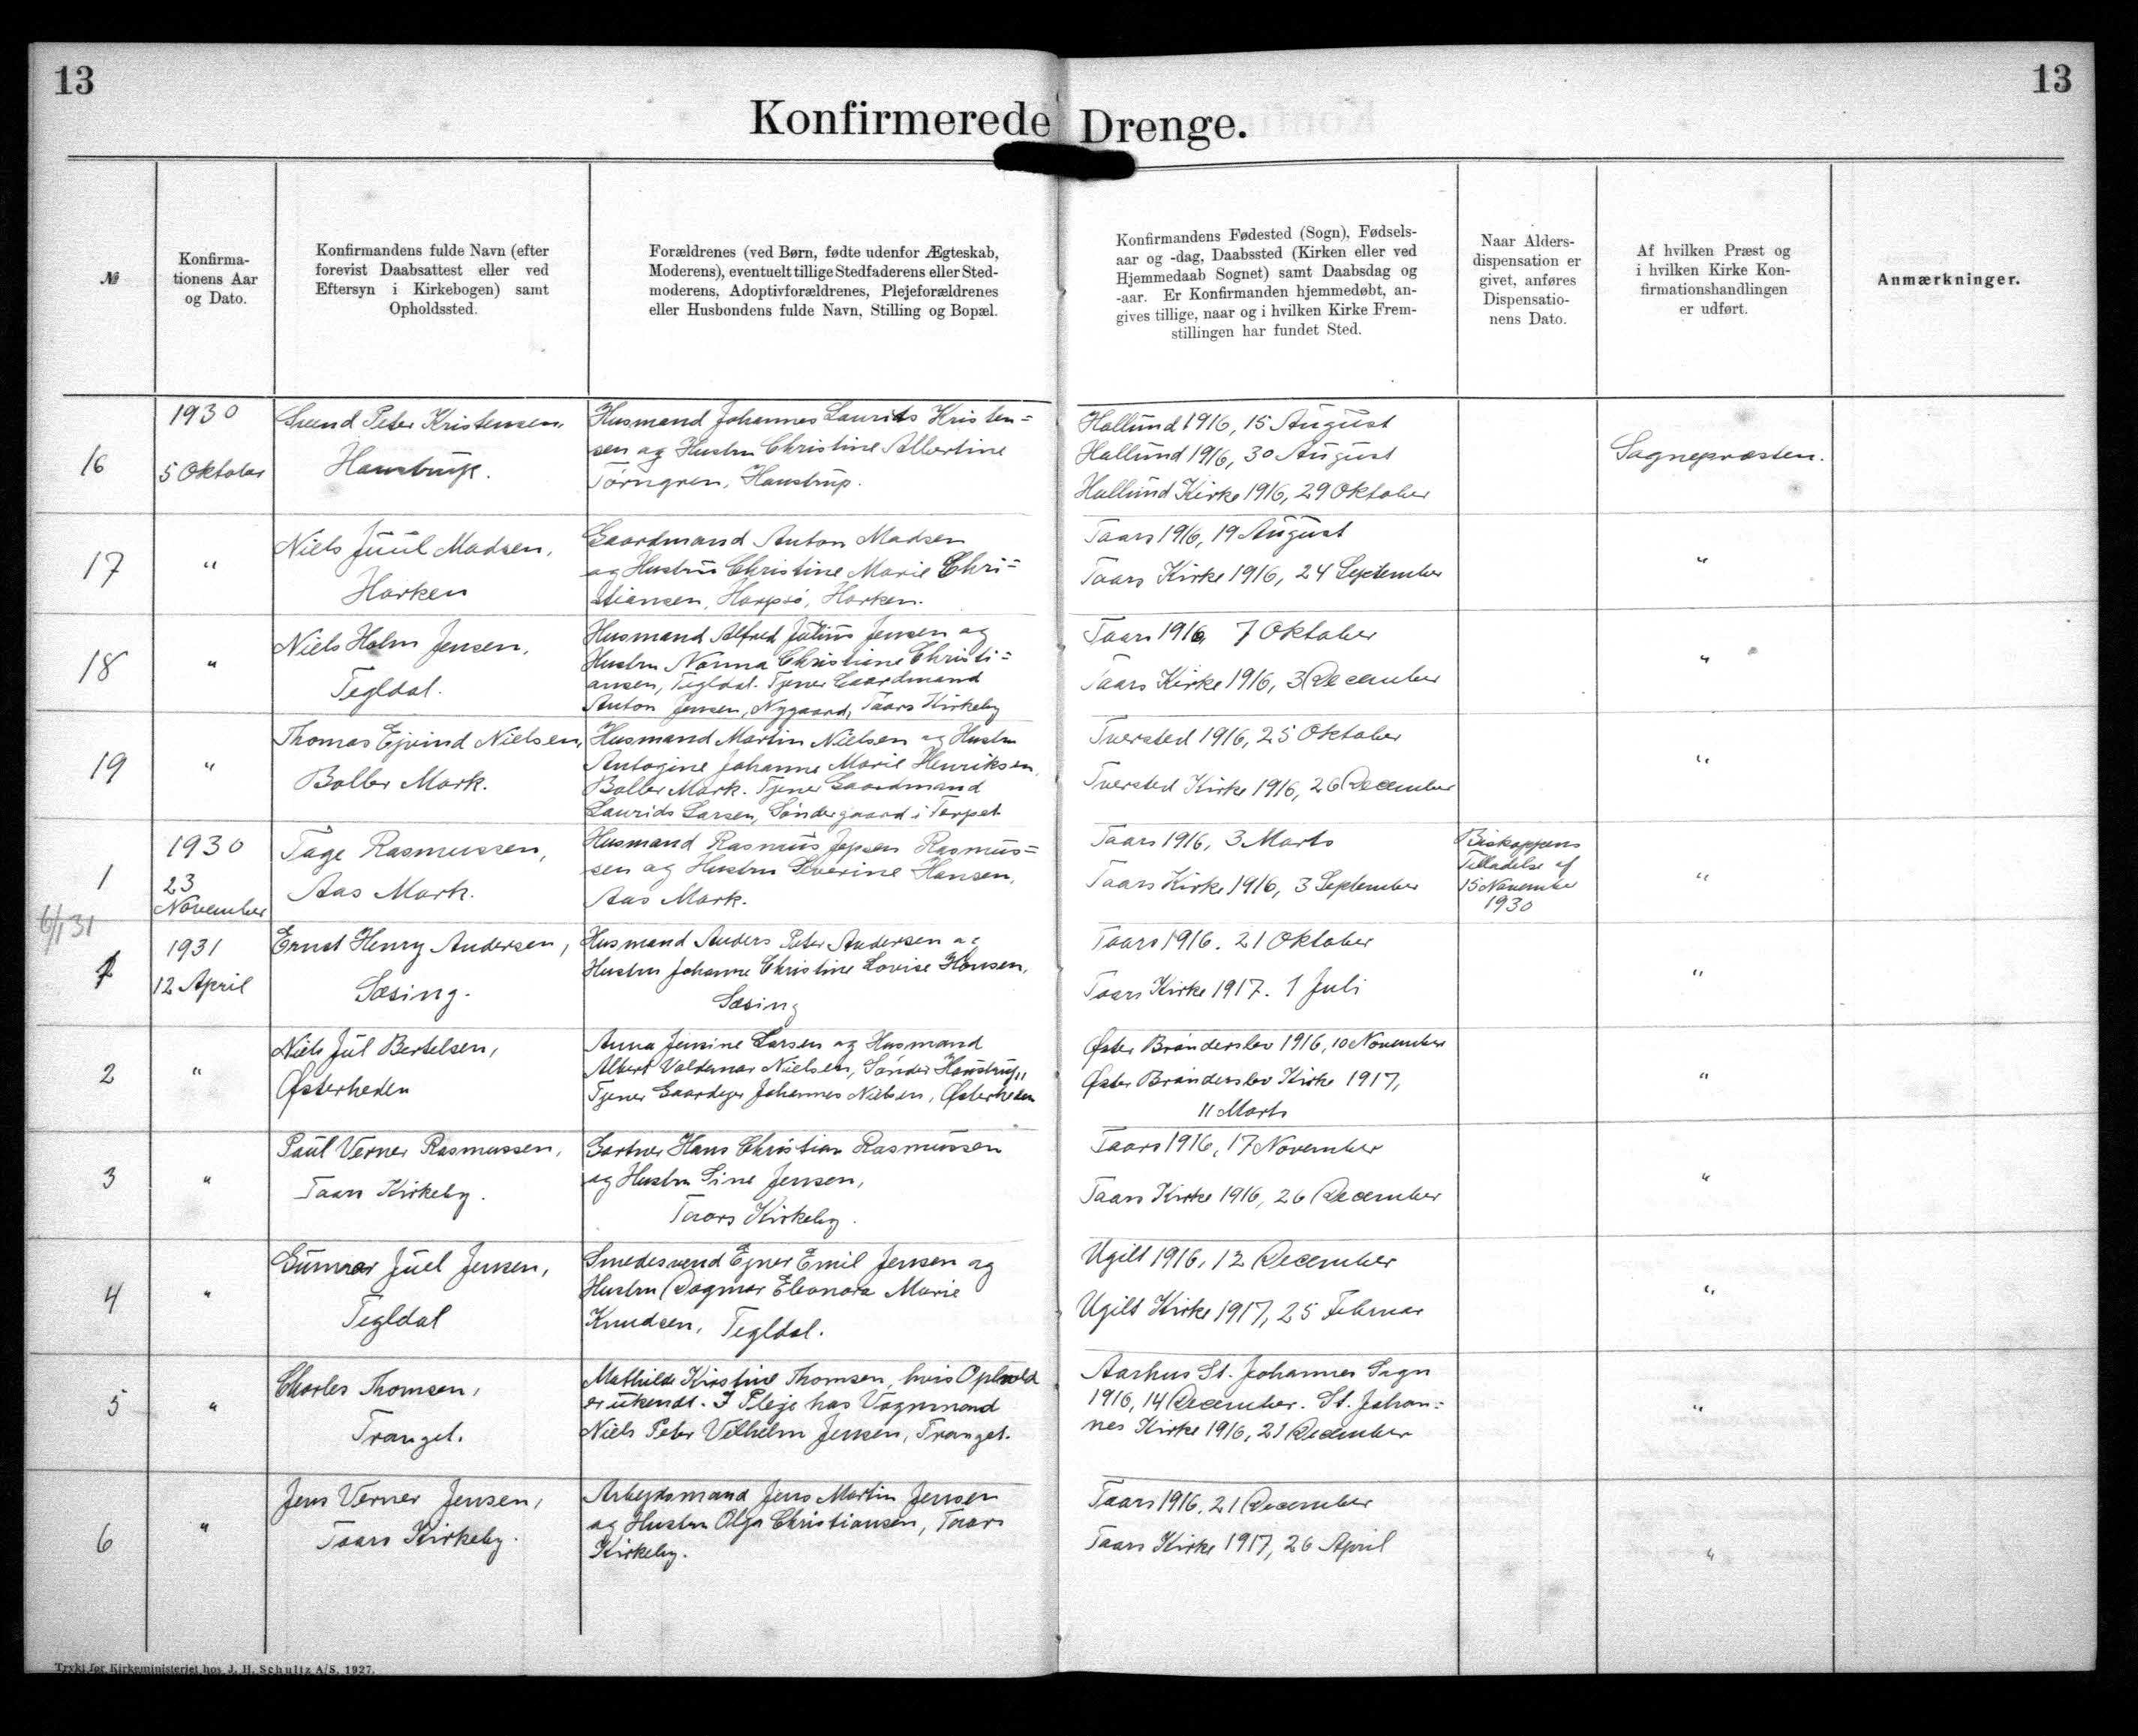 13
13
Konfirmerede Drenge.
№
Konfirma-
tionens Aar
og Dato.
Konfirmandens fulde Navn (efter
forevist Daabsattest eller ved
Eftersyn i Kirkebogen) samt
Opholdssted.
Forældrenes (ved Børn, fødte udenfor Ægteskab,
Moderens), eventuelt tillige Stedfaderens eller Sted-
moderens, Adoptivforældrenes, Plejeforældrenes
eller Husbondens fulde Navn, Stilling og Bopæl.
Konfirmandens Fødested (Sogn), Fødsels-
aar og -dag, Daabssted (Kirken eller ved
Hjemmedaab Sognet) samt Daabsdag og
-aar. Er Konfirmanden hjemmedøbt, an-
gives tillige, naar og i hvilken Kirke Frem-
stillingen har fundet Sted.
Naar Alders-
dispensation er
givet, anføres
Dispensatio-
nens Dato.
Af hvilken Præst og
i hvilken Kirke Kon-
firmationshandlingen
er udført.
Anmærkninger.
16
1930
5 Oktober
Svend Peter Kristensen,
Haustrup.
Husmand Johannes Laurits Kristen=
sen og Hustru Christine Albertine
Törngren, Haustrup.
Hallund 1916, 15 August
Hallund 1916, 30 August
Hallund Kirke 1916, 29 Oktober
Sognepræsten.
17
"
Niels Juul Madsen,
Harken
Gaardmand Anton Madsen
og Hustru Christine Marie Chri=
stiansen, Harpsö, Harken.
Taars 1916, 19 August
Taars Kirke 1916, 24 September
"
18
"
Niels Holm Jensen,
Tegldal.
Husmand Alfred Julius Jensen og
Hustru Norma Christiane Christi=
ansen, Tegldal. Tjener Gaardmand
Anton Jensen, Nygaard, Taars Kirkeby
Taars 1916, 7 Oktober
Taars Kirke 1916, 3 December
"
19
"
Thomas Ejvind Nielsen,
Boller Mark.
Husmand Martin Nielsen og Hustru
Antogine Johanne Marie Henriksen,
Boller Mark. Tjener Gaardmand
Laurids Larsen, Söndergaard i Torpet
Tversted 1916, 25 Oktober
Tversted Kirke 1916, 26 December
"
1
1930
23
November
Tage Rasmussen,
Aas Mark.
Husmand Rasmus Jepsen Rasmus=
sen og Hustru Severine Hansen,
Aas Mark.
Taars 1916, 3 Marts
Taars Kirke 1916, 3 September
Biskoppens
Tilladelse af
15 November
1930
"
6/1 31
1
1931
12 April
Ernst Henry Andersen,
Sæsing.
Husmand Anders Peter Andersen og
Hustru Johanne Christine Lovise Hansen,
Sæsing
Taars 1916. 21 Oktober
Taars Kirke 1917. 1 Juli
"
2
"
Niels Jul Bertelsen,
Østerheden
Anna Jensine Larsen og Husmand
Albert Valdemar Nielsen, Sönder Haustrup,
Tjener Gaardejer Johannes Nielsen, Østerheden
Øster Brönderslev 1916, 10 November
Øster Brönderslev Kirke 1917,
11 Marts
"
3
"
Paul Verner Rasmussen,
Taars Kirkeby.
Gartner Hans Christian Rasmussen
og Hustru Sine Jensen,
Taars Kirkeby.
Taars 1916, 17 November
Taars Kirke 1916, 26 December
"
4
"
Gunnar Juel Jensen,
Tegldal
Smedesvend Ejner Emil Jensen og
Hustru Dagmar Eleonora Marie
Knudsen, Tegldal.
Ugilt 1916, 12 December
Ugilt Kirke 1917, 25 Februar
"
5
"
Charles Thomsen,
Tranget.
Mathilde Kirstine Thomsen, hvis Ophold
er ukendt. I Pleje hos Vognmand
Niels Peter Vilhelm Jensen, Tranget.
Aarhus St. Johannes Sogn
1916, 14 December. St. Johan=
nes Kirke 1916, 21 December
"
6
"
Jens Verner Jensen,
Taars Kirkeby.
Arbejdsmand Jens Martin Jensen
og Hustru Olga Christiansen, Taars
Kirkeby.
Taars 1916, 21 December
Taars Kirke 1917, 26 April
"
Trykt for Kirkeministeriet hos J. H. Schultz A/S. 1927.